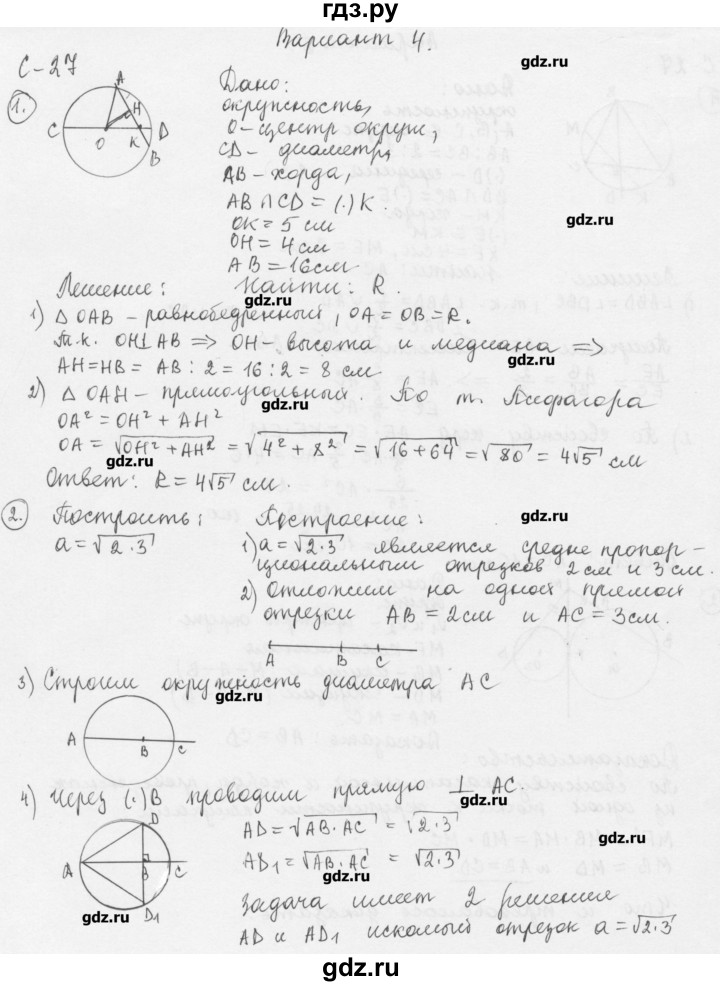 гдз.ру
Вариант 4.
С-27
gdz.ru
1.
A
H
C
O
K
D
B
Дано:
окружность,
O - центр окруж,
CD - диаметр,
AB - хорда,
AB ∩ CD = (·) K.
OK = 5 см
OH = 4 см
AB = 16 см
gdz.ru
gdz.ru
Решение: Найти: R.
gdz.ru
1) △ OAB - равнобедренный, OA = OB = R.
Т.к. OH ⊥ AB ⟹ OH - высота и медиана ⟹
AH = HB = AB : 2 = 16 : 2 = 8 см
gdz.ru
2) △ OAH - прямоугольный. По т. Пифагора
gdz.ru
OA² = OH² + AH²
OA = √OH² + AH² = √4² + 8² = √16 + 64 = √80 = 4√5 см
gdz.ru
Ответ: R = 4√5 см.
gdz.ru
2. Построить: Построение:
a = √2·3 1) a = √2·3 является средне пропор-
циональным отрезков 2 см и 3 см.
gdz.ru
2) Отложим на одной прямой
отрезки AB = 2 см и AC = 3 см.
A B C
gdz.ru
3) Строим окружность диаметра AC
gdz.ru
A B C
4) Через (·) B проводим прямую ⊥ AC.
gdz.ru
D
A B C
D₁
AD = √AB·AC = √2·3
AD₁ = √AB·AC = √2·3
gdz.ru
gdz.ru
Задача имеет 2 решения
AD и AD₁ искомый отрезок a = √2·3
gdz.ru
gdz.ru